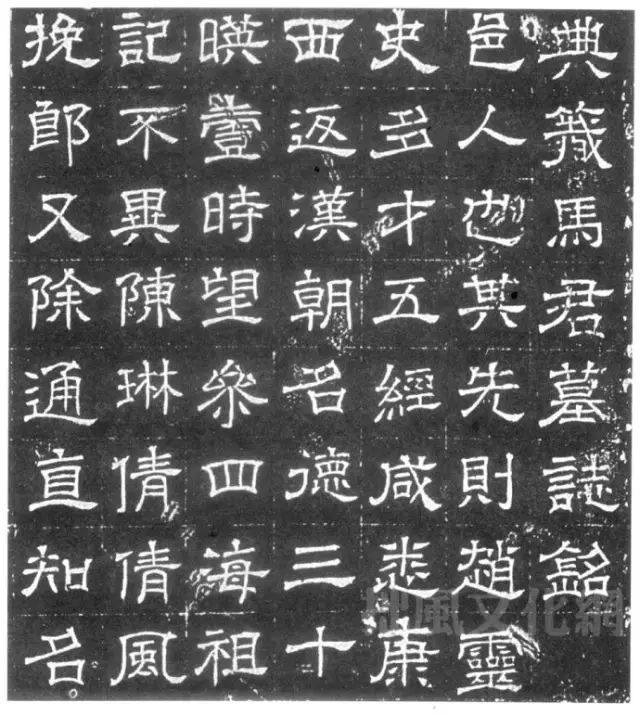 典籤馬君墓誌銘
邑人也其先則趙靈
史多才五經咸悉康
西返漢朝名德三十
暎壹時望叅四海祖
記不異陳琳倩倩風
挽郎又除通直知名
風文化網